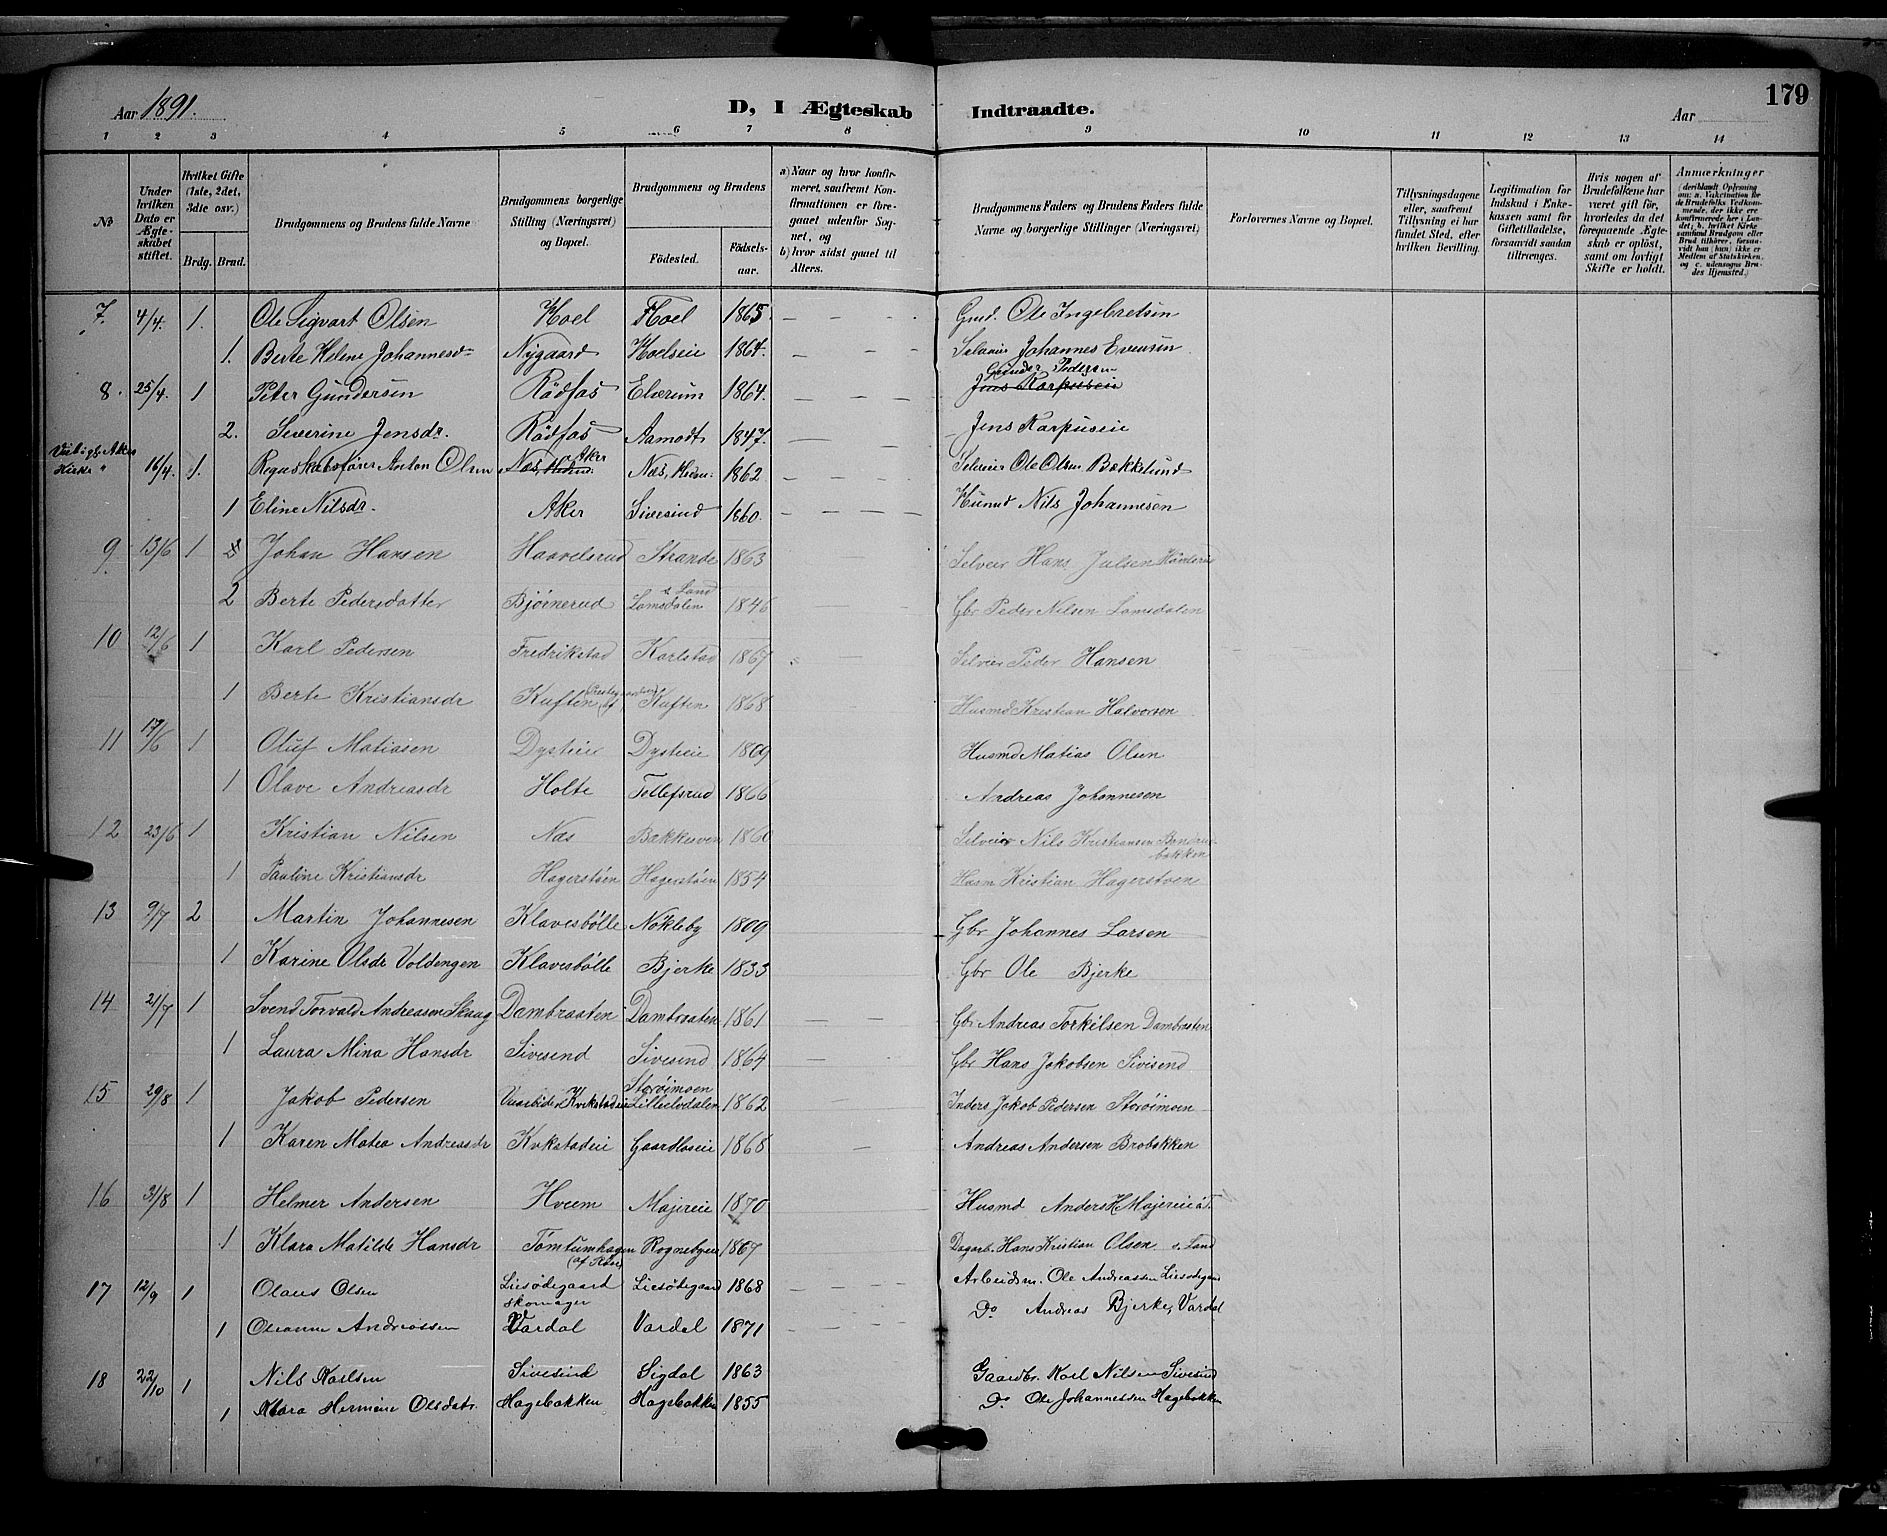 Aar 1891.
D, I Ægteskab Indtraadte.
Aar
179
1 2 3 4 5 6 7 8 9 10 11 12 13 14
No
Under hvilken Dato er Ægteskabet stiftet.
Hvilket Gifte (1ste, 2det, 3die osv.)
Brdg. Brud.
Brudgommens og Brudens fulde Navne
Brudgommens borgerlige Stilling (Næringsvei) og Bopæl.
Brudgommens og Brudens
Fødested.
Fødselsaar.
a) Naar og hvor konfirmeret, saafremt Konfirmationen er foregaaet udenfor Sognet, og
b) hvor sidst gaaet til Alters.
Brudgommens Faders og Brudens Faders fulde Navne og borgerlige Stillinger (Næringsvei)
Forlovernes Navne og Bopæl.
Tillysningsdagene eller, saafremt Tillysning ei har fundet Sted, efter hvilken Bevilling.
Legitimation for Indskud i Enkekassen samt for Giftetilladelse, forsaavidt saadan tiltrænges.
Hvis nogen af Brudefolkene har været gift før, hvorledes da det foregaaende Ægteskab er opløst, samt om lovligt Skifte er holdt.
Anmærkninger
7. 4/4. 1. Ole Sigvart Olsen Hoel Hoel 1865. Gmd. Ole Ingebretsen
1. Berte Helene Johannesd Nygaard Hoelseie 1864. Selveier Johannes Evensen
Gunder Pedersen
8. 25/4. 1 Peter Gundersen Rödfos Elverum 1864. Jens Karpuseie
2. Severine Jensdr. Rödfos Aamodt 1847. Jens Karpuseie
Aker
Kirke " 16/4. 1. Regnskabsfører Anton Olsen Næs, Hedm. Aker Næs, Hedm. 1862 Selveier Ole Olsen Bækkelund
1 Eline Nilsdr. Aker Sivesind 1860. Husmd Nils Johannesen
9. 13/6 1 Johan Hansen Haavelsrud Strande 1863 Selveier Hans Julsen
2 Berte Pedersdatter Bjørnerud Lomsdalen s. Land 1846 Gbr Peder Nilsen Lomsdalen
10 12/6 1 Karl Pedersen Fredrikstad Karlstad 1867 Selveier Peder Hansen
1 Berte Kristiansdr Kuften Kuften 1868 Husmd Kristian Halvorsen
11 17/6 1 Oluf Matiasen Dysteie Dysteie 1869 Husmd Matias Olsen
1 Olave Andreasdr Holte Tollefsrud 1866 Andreas Johannesen
12 23/6 1 Kristian Nilsen Næs Bækkesven 1860 Selveier Nils Kristiansen
bakken
1 Pauline Kristiansdr Hagerstøen Hagerstøen 1854 Husm Kristian Hagerstøen
13 9/7 2 Martin Johannesen Klavesbølle Nökleby 1809 Gbr Johannes Larsen
1 Karine Olsdr Voldengen Klavesbølle Bjerke 1833 Gbr Ole Bjerke
14 21/7 1 Svend Torvald Andreasen Skaug Dambraaten Dambraaten 1861 Gbr Andreas Torkilsen Dambraaten
1 Laura Mina Hansdr Sivesend Sivesend 1864 Gbr Hans Jakobsen Sivisend
15 29/8 1 Jakob Pedersen Kvikstadeie Storöimoen Lilleelvdalen 1862 Inders Jakob Pedersen Storöimoen
1 Karen Matea Andreasdr Kvkstadeie Gaardløseie 1868 Andreas Andersen Brobakken
16 31/8 1 Helmer Andersen Hveem Majereie 1870 Husmd Anders H. Majereie
1 Klara Matilde Hansdr Tömtumhagen Rognebyeie 1867 Dagarb. Hans Kristian Olsen s. Land
17 12/9 1 Olaus Olsen Liesödegaard skomager Liesödegaard 1868 Arbeidsm. Ole Andreassen Liesödegaard
1 Oleanne Andreassen Vardal Vardal 1871 Do Andreas Bjerke, Vardal
18 22/10 1 Nils Karlsen Sivesind Sigdal 1863 Gaardbr. Karl Nilsen Sivesind
1 Klara Hermine Olsdatr. Hagebakken Hagebakken 1855 Do. Ole Johannessen Hagebakken